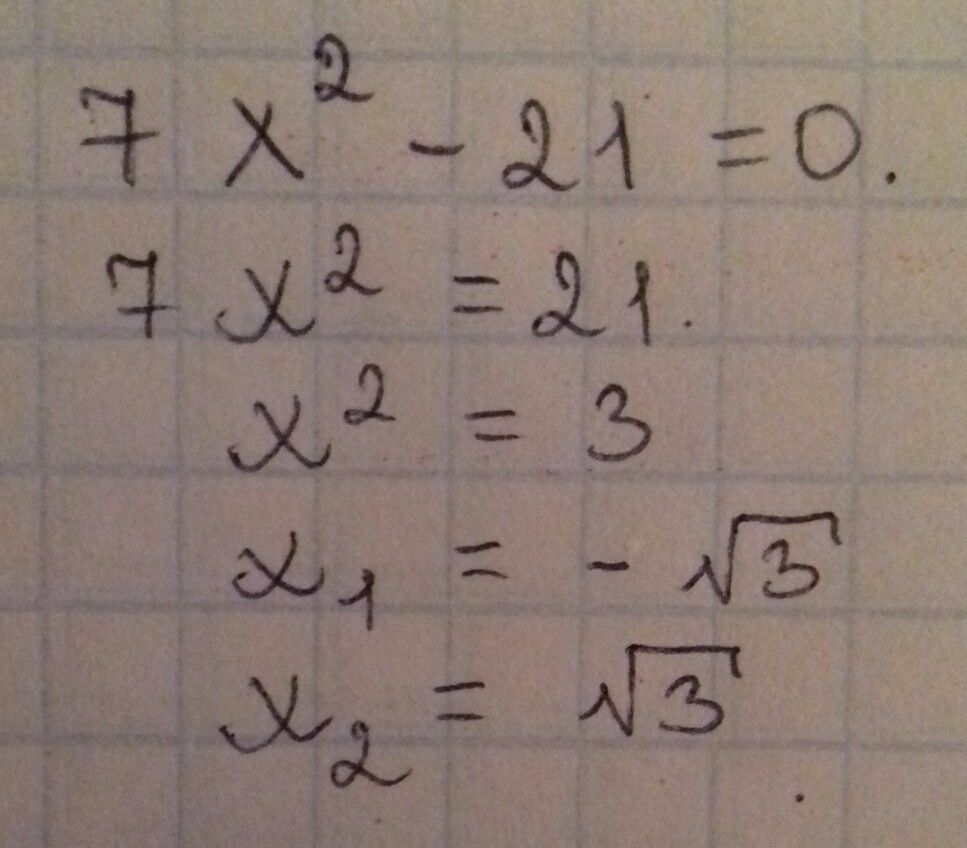 7x² - 21 = 0.
7x² = 21.
x² = 3
x₁ = - √3
x₂ = √3